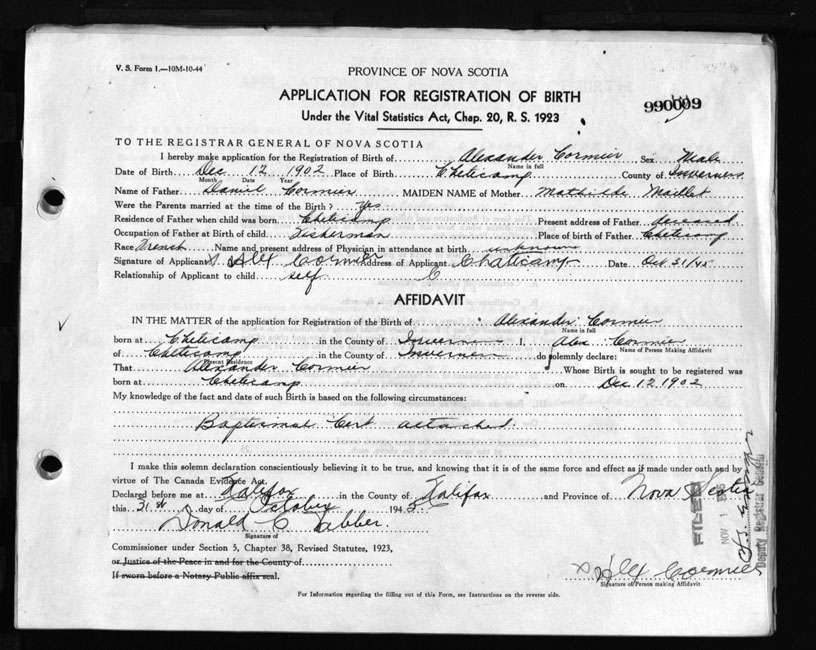 V. S. Form 1.—10M-10-44
PROVINCE OF NOVA SCOTIA
APPLICATION FOR REGISTRATION OF BIRTH
Under the Vital Statistics Act, Chap. 20, R. S. 1923
990009
TO THE REGISTRAR GENERAL OF NOVA SCOTIA
I hereby make application for the Registration of Birth of Alexander Cormier Sex Male
Name in full
Date of Birth Dec 12 1902 Place of Birth Chelicamp County of Inverness
Month Date Year
Name of Father Daniel Cormier MAIDEN NAME of Mother Mathilde Maillet
Were the Parents married at the time of the Birth? Yes
Residence of Father when child was born Chelicamp Present address of Father deceased
Occupation of Father at Birth of child Fisherman Place of birth of Father Chelicamp
Race French Name and present address of Physician in attendance at birth unknown
Signature of Applicant Alex Cormier Address of Applicant Chaticamp Date Oct 31/45
Relationship of Applicant to child self
AFFIDAVIT
IN THE MATTER of the application for Registration of the Birth of Alexander Cormier
Name in full
born at Chelicamp in the County of Inverness I, Alex Cormier
Name of Person Making Affidavit
of Chaticamp in the County of Inverness do solemnly declare:
Present Residence
That Alexander Cormier Whose Birth is sought to be registered was
born at Chelicamp on Dec 12 1902
My knowledge of the fact and date of such Birth is based on the following circumstances:
Baptismal Cert attached.
I make this solemn declaration conscientiously believing it to be true, and knowing that it is of the same force and effect as if made under oath and by
virtue of The Canada Evidence Act.
Declared before me at Halifax in the County of Halifax and Province of Nova Scotia
this 31st day of October 1945
Donald C
Signature of
Commissioner under Section 5, Chapter 38, Revised Statutes, 1923,
or Justice of the Peace in and for the County of
If sworn before a Notary Public affix seal.
Alex Cormier
Signature of Person making Affidavit
FILED
NOV 1
Deputy Registrar General
For Information regarding the filling out of this Form, see Instructions on the reverse side.